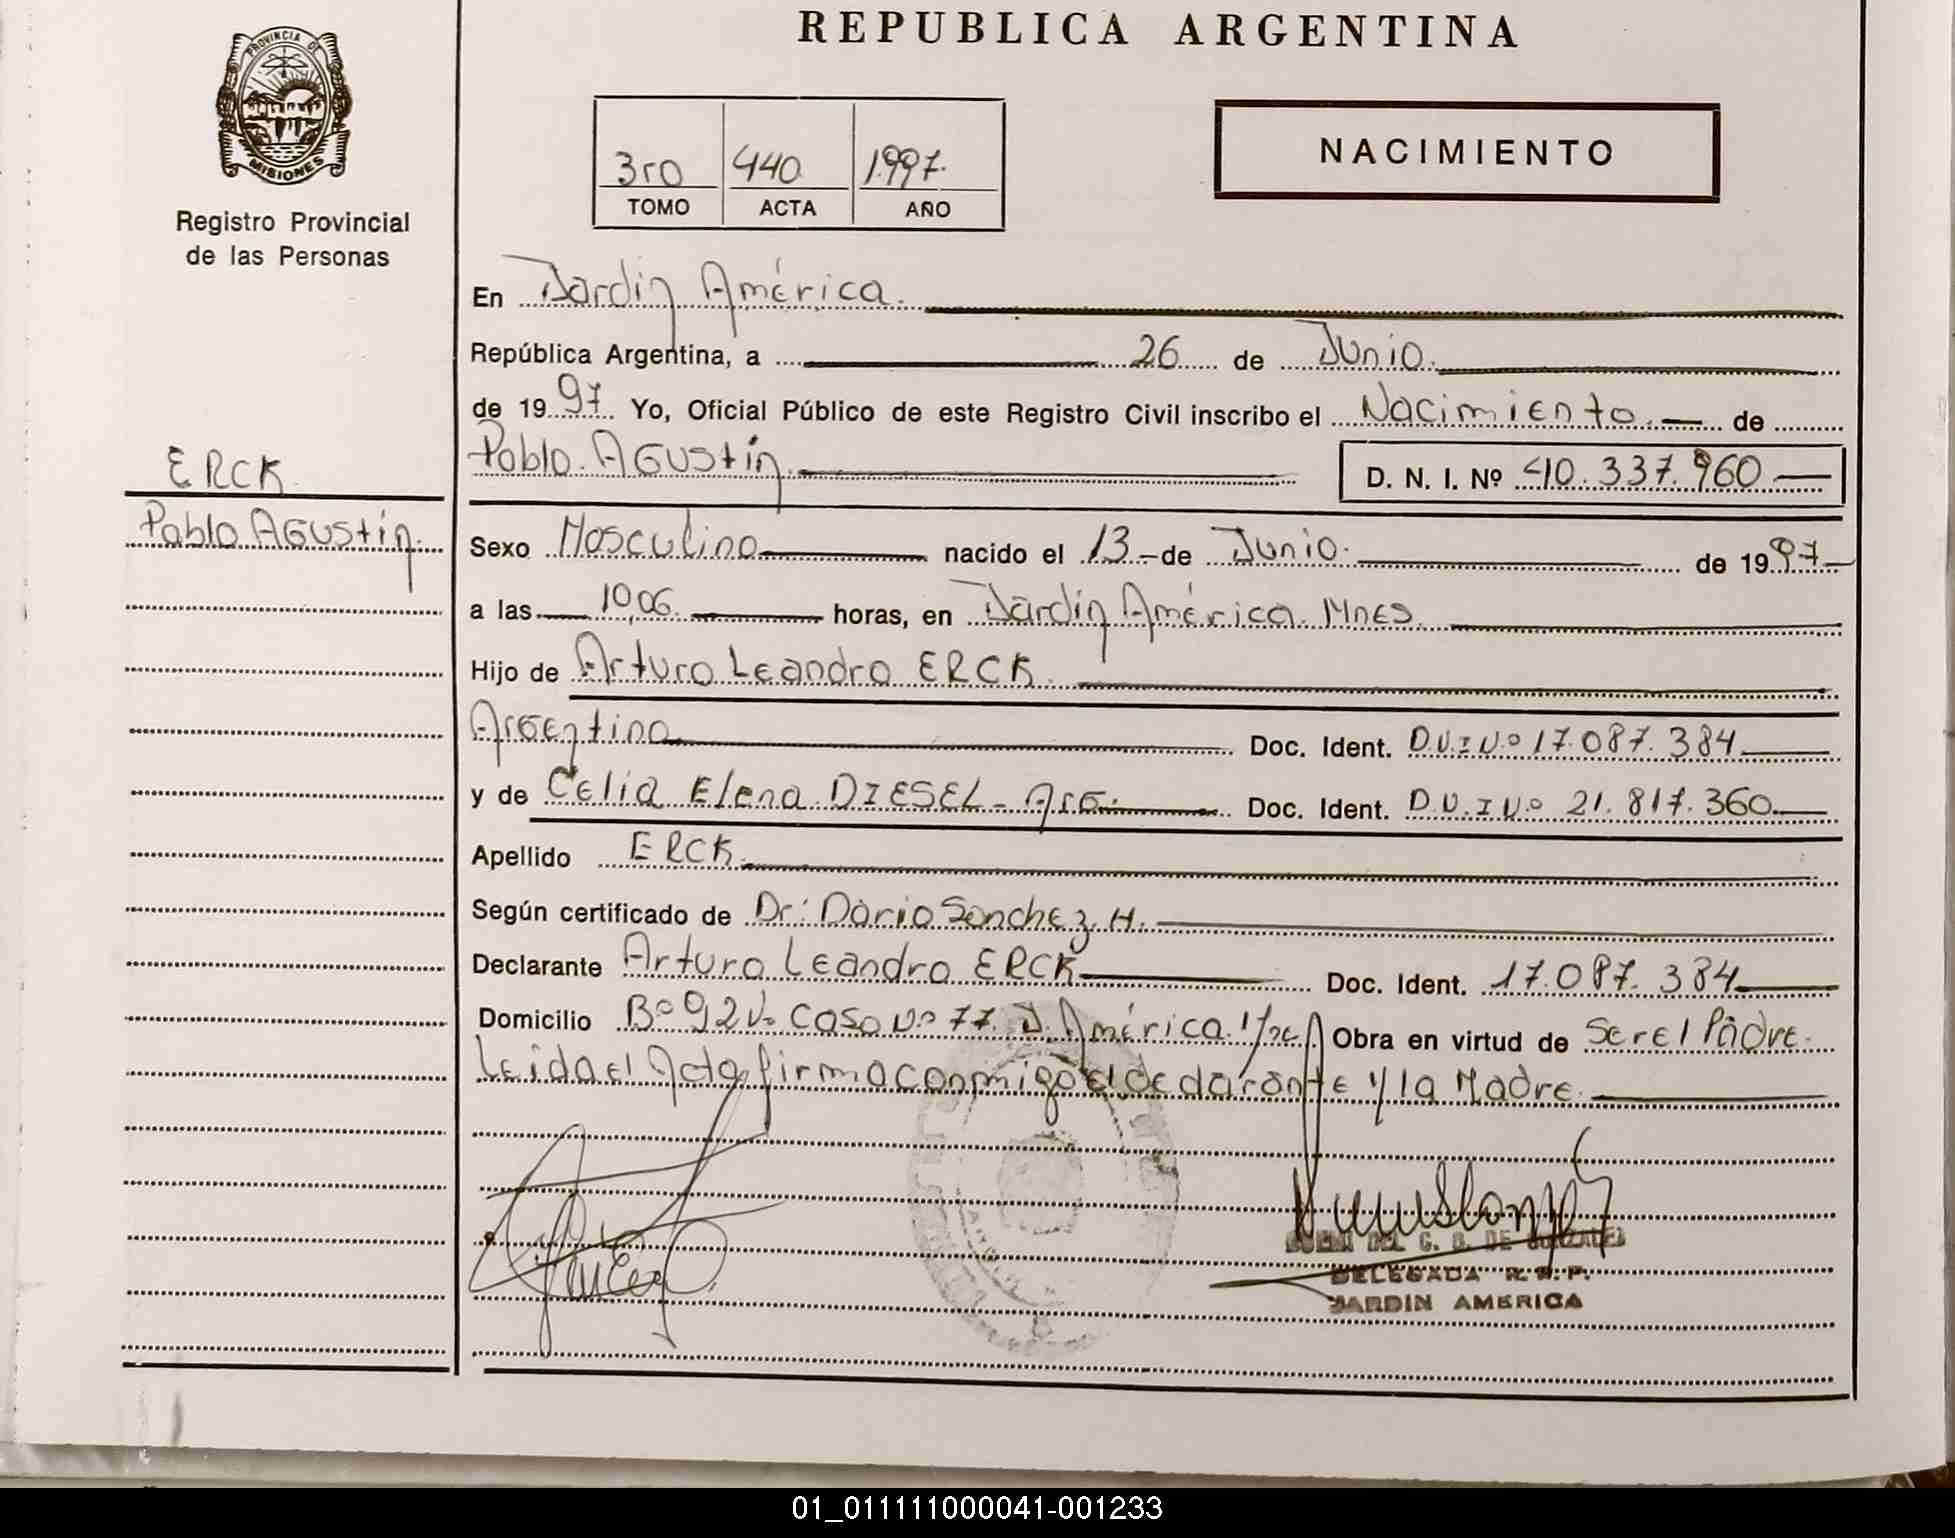 REPUBLICA ARGENTINA
PROVINCIA DE
MISIONES
Registro Provincial
de las Personas
3ro 440 1.997.
TOMO ACTA AÑO
NACIMIENTO
En Jardín América.
República Argentina, a 26 de Junio.
de 1997 Yo, Oficial Público de este Registro Civil inscribo el Nacimiento. de
Pablo Agustín.
D. N. I. Nº 40.337.960
ERCK
Pablo Agustín.
Sexo Masculino nacido el 13 de Junio. de 1997
a las 10,06. horas, en Jardín América. Mnes.
Hijo de Arturo Leandro ERCK.
Argentino Doc. Ident. D.N.I Nº 17.087.384
y de Celia Elena DIESEL - Arg. Doc. Ident. D.N.I Nº 21.817.360
Apellido ERCK.
Según certificado de Dr: Dario Sanchez H.
Declarante Arturo Leandro ERCK Doc. Ident. 17.087.384
Domicilio Bº 92 V. Casa Nº 77. J. América. Obra en virtud de Ser el Padre.
Leida el Acta firma conmigo el declarante y la Madre.
DEL C. B. DE GONZALEZ
DELEGADA R. P. P.
JARDIN AMERICA
01_011111000041-001233